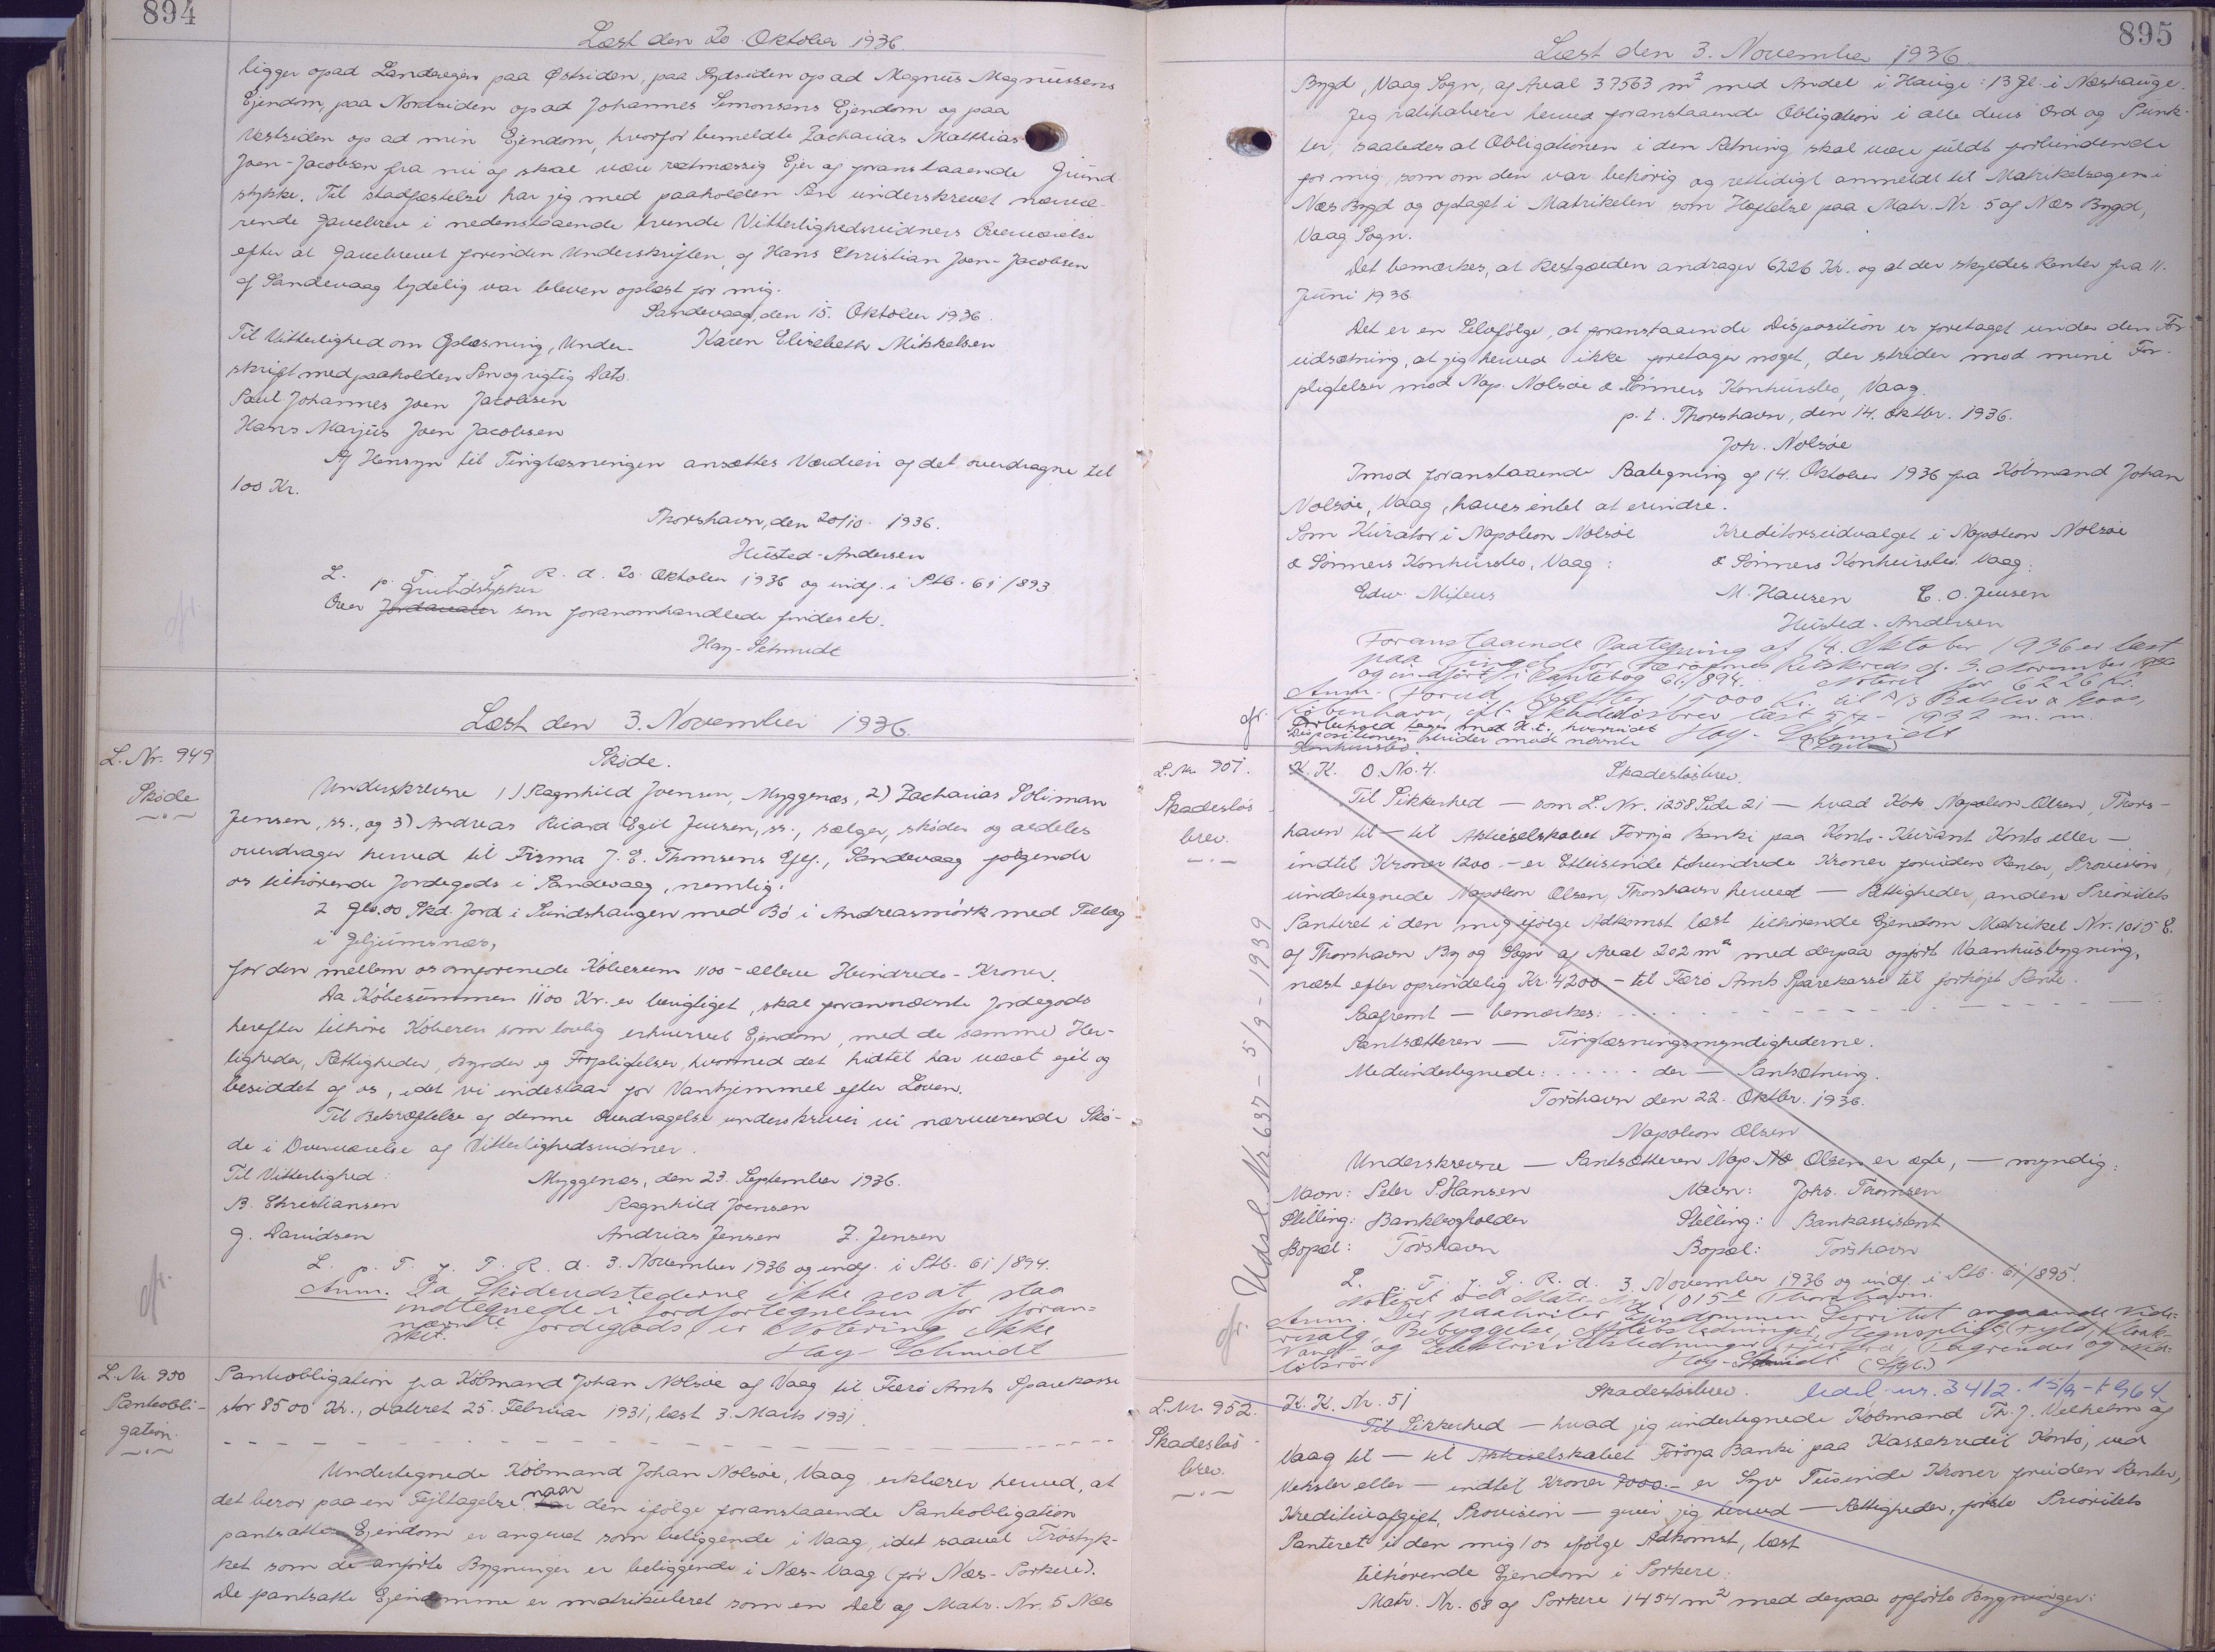 894
Læst den 20. Oktober 1936.
ligger opad Landvejen paa Østsiden, paa Sydsiden op ad Magnus Magnussens
Ejendom, paa Nordsiden op ad Johannes Simonsens Ejendom og paa
Vestsiden op ad min Ejendom, hvorfor bemeldte Zacharias Matthias
Joen-Jacobsen fra nu af skal være retmæssig Ejer af foranstaaende Grund-
stykke. Til Stadfæstelse har jeg med paaholden Pen underskrevet nærvæ-
rende Gavebrev i nedenstaaende tvende Vitterlighedsvidners Overværelse
efter at Gavebrevet forinden Underskriften af Hans Christian Joen-Jacobsen
af Sandevaag lydelig var bleven oplæst for mig.
Sandevaag, den 15. Oktober 1936.
Til Vitterlighed om Oplæsning, Under- Karen Elisabeth Mikkelsen
skrift med paaholden Pen og rigtig Dato.
Poul Johannes Joen Jacobsen
Hans Marjus Joen Jacobsen
Af Hensyn til Tinglæsningen ansættes Værdien af det overdragne til
100 Kr.
Thorshavn, den 20/10. 1936.
Husted-Andersen
L. p. T. f. F. R. d. 20. Oktober 1936 og indf. i Ptb. 61/893
Grundstykker
Over Jordarealer som foranomhandlede findes ek.
Hay-Schmidt
cfr.
Læst den 3. November 1936.
L. Nr. 949
Skøde
Skøde.
Underskrevne 1) Ragnhild Joensen, Myggenæs, 2) Zacharias Soliman
Jensen, ss., og 3) Andreas Ricard Egil Jensen, ss., sælger, skøder og aldeles
overdrager herved til Firma J. E. Thomsens Eftf., Sandevaag følgende
os tilhørende Jordegods i Sandevaag, nemlig:
2 Gl. 00 Skd. Jord i Sundshaugen med Bø i Andreasmørk med Tillæg
i Gljumsnæs,
for den mellem os omforenede Købesum 1100 - elleve Hundrede - Kroner.
Da Købesummen 1100 Kr. er berigtiget, skal forannævnte Jordegods
herefter tilhøre Køberen som lovlig erhvervet Ejendom, med de samme Her-
ligheder, Rettigheder, Byrder og Forpligtelser, hvormed det hidtil har været ejet og
besiddet af os, idet vi indestaar for Vanhjemmel efter Loven.
Til Bekræftelse af denne Overdragelse underskriver vi nærværende Skø-
de i Overværelse af Vitterlighedsvidner.
Til Vitterlighed: Myggenæs, den 23. September 1936.
B. Christiansen Ragnhild Joensen
J. Davidsen Andrias Jensen Z. Jensen
L. p. T. f. F. R. d. 3. November 1936 og indf. i Ptb. 61/894.
Anm. Da Skødeudstederne ikke ses at staa
indtegnede i Jordfortegnelsen for foran=
nævnte Jordegods er Notering ikke
sket.
Hay-Schmidt
cfr.
L. Nr. 950
Panteobli-
gation.
Panteobligation fra Købmand Johan Nolsøe af Vaag til Færø Amts Sparekasse
stor 8500 Kr., dateret 25. Februar 1931, læst 3. Marts 1931.
Undertegnede Købmand Johan Nolsøe, Vaag erklærer herved, at
naar
det beror paa en Fejltagelse, den ifølge foranstaaende Panteobligation
pantsatte Ejendom er angivet som beliggende i Vaag, idet saavel Trøstyk-
ket som de anførte Bygninger er beliggende i Næs-Vaag (før Næs-Porkere).
De pantsatte Ejendomme er matrikuleret som en Del af Matr. Nr. 5 Næs
895
Læst den 3. November 1936.
Bygd, Vaag Sogn, af Areal 37563 m² med Andel i Hauge: 13 Gl. i Næshauge.
Jeg ratihaberer herved foranstaaende Obligation i alle dens Ord og Punk-
ter, saaledes at Obligationen i den Retning skal være fuldt forbindende
for mig, som om den var behørig og rettidigt anmeldt til Matrikelsagen i
Næs Bygd og optaget i Matrikelen som Hæftelse paa Matr. Nr. 5 af Næs Bygd,
Vaag Sogn.
Det bemærkes, at Restgælden andrager 6226 Kr. og at der skyldes Renter fra 11.
Juni 1936.
Det er en Selvfølge, at foranstaaende Disposition er foretaget under den For-
udsætning, at jeg herved ikke foretager noget, der strider mod mine For-
pligtelser mod Nap. Nolsøe & Sønners Konkursbo, Vaag.
p. t. Thorshavn, den 14. Oktbr. 1936.
Joh. Nolsøe
Imod foranstaaende Paategning af 14. Oktober 1936 fra Købmand Johan
Nolsøe, Vaag, haves intet at erindre.
Som Kurator i Napoleon Nolsøe Kreditorudvalget i Napoleon Nolsøe
& Sønners Konkursbo, Vaag: & Sønners Konkursbo, Vaag:
Edw. Mitens M. Hansen C. O. Jensen
Husted-Andersen
Foranstaaende Paategning af 14. Oktober 1936 er læst
paa Tinget for Færøernes Retskreds d. 3. November 1936
og indført i Pantebog 61/894. Noteret for 6226 Kr.
Anm. Forud hæfter 15000 Kr. til A/S
København, ifl. Skadesløsbrev læst 5/7 - 1932 m. m.
Forbehold tages med H. t. hvorvidt
Dispositionen strider mod nævnte Hay-Schmidt
Konkursbo.
cfr.
L. Nr. 951.
Skadesløs-
brev.
K. K. O. No. 4. Skadesløsbrev.
Til Sikkerhed — som L. Nr. 1258 Side 21 — hvad Kok Napoleon Olsen, Thors-
havn til — til Aktieselskabet Føroya Banki paa Konto-Kurant Konto eller —
indtil Kroner 1200.- er Ettusinde tohundrede Kroner foruden Renter, Provision,
undertegnede Napoleon Olsen, Thorshavn herved — Rettigheder, anden Prioritets
Panteret i den mig ifølge Adkomst læst tilhørende Ejendom Matrikel Nr. 1015 E.
af Thorshavn By og Sogn af Areal 202 m² med derpaa opført Vaanhusbygning,
næst efter oprindelig Kr. 4200 - til Færø Amts Sparekasse til forhøjet Rente.
Saafremt — bemærkes:
Pantsætteren — Tinglæsningsmyndighederne.
Medundertegnede: . . . . . . der — Pantsætning.
Tórshavn den 22. Oktbr. 1936.
Napoleon Olsen
Underskrevne — Pantsætteren Nap. Olsen er æge, — myndig:
Navn: Peter P Hansen Navn: Johs. Thomsen
Stilling: Bankbogholder Stilling: Bankassistent
Bopæl: Tórshavn Bopæl: Tórshavn
L. p. T. f. F. R. d. 3. November 1936 og indf. i Ptb. 61/895.
Noteret paa Matr. Nr. 1015e Thorshavn.
Anm. Der paahviler Ejendommen Servitut angaaende Vide-
resalg, Bebyggelse, Afløbsledninger, Hegnspligt,
Vand- og Elektricitetsledninger
løbsrør Hay-Schmidt
cfr. Udsl. Nr. 637 - 5/9 - 1939
L. Nr. 952.
Skadesløs-
brev.
K. K. Nr. 51 Skadesløsbrev. Udsl. nr. 3412. 15/9-1964.
Til Sikkerhed — hvad jeg undertegnede Købmand Th. J. Velhelm af
Vaag til — til Aktieselskabet Føroya Banki paa Kassekredit Konto, ved
Veksler eller — indtil Kroner 7000.- er Syv Tusinde Kroner foruden Renter,
Kreditivafgift, Provision — giver jeg herved — Rettigheder, første Prioritets
Panteret i den mig/os ifølge Adkomst, læst
tilhørende Ejendom i Porkere:
Matr. Nr. 68 af Porkere 1454 m² med derpaa opførte Bygninger: